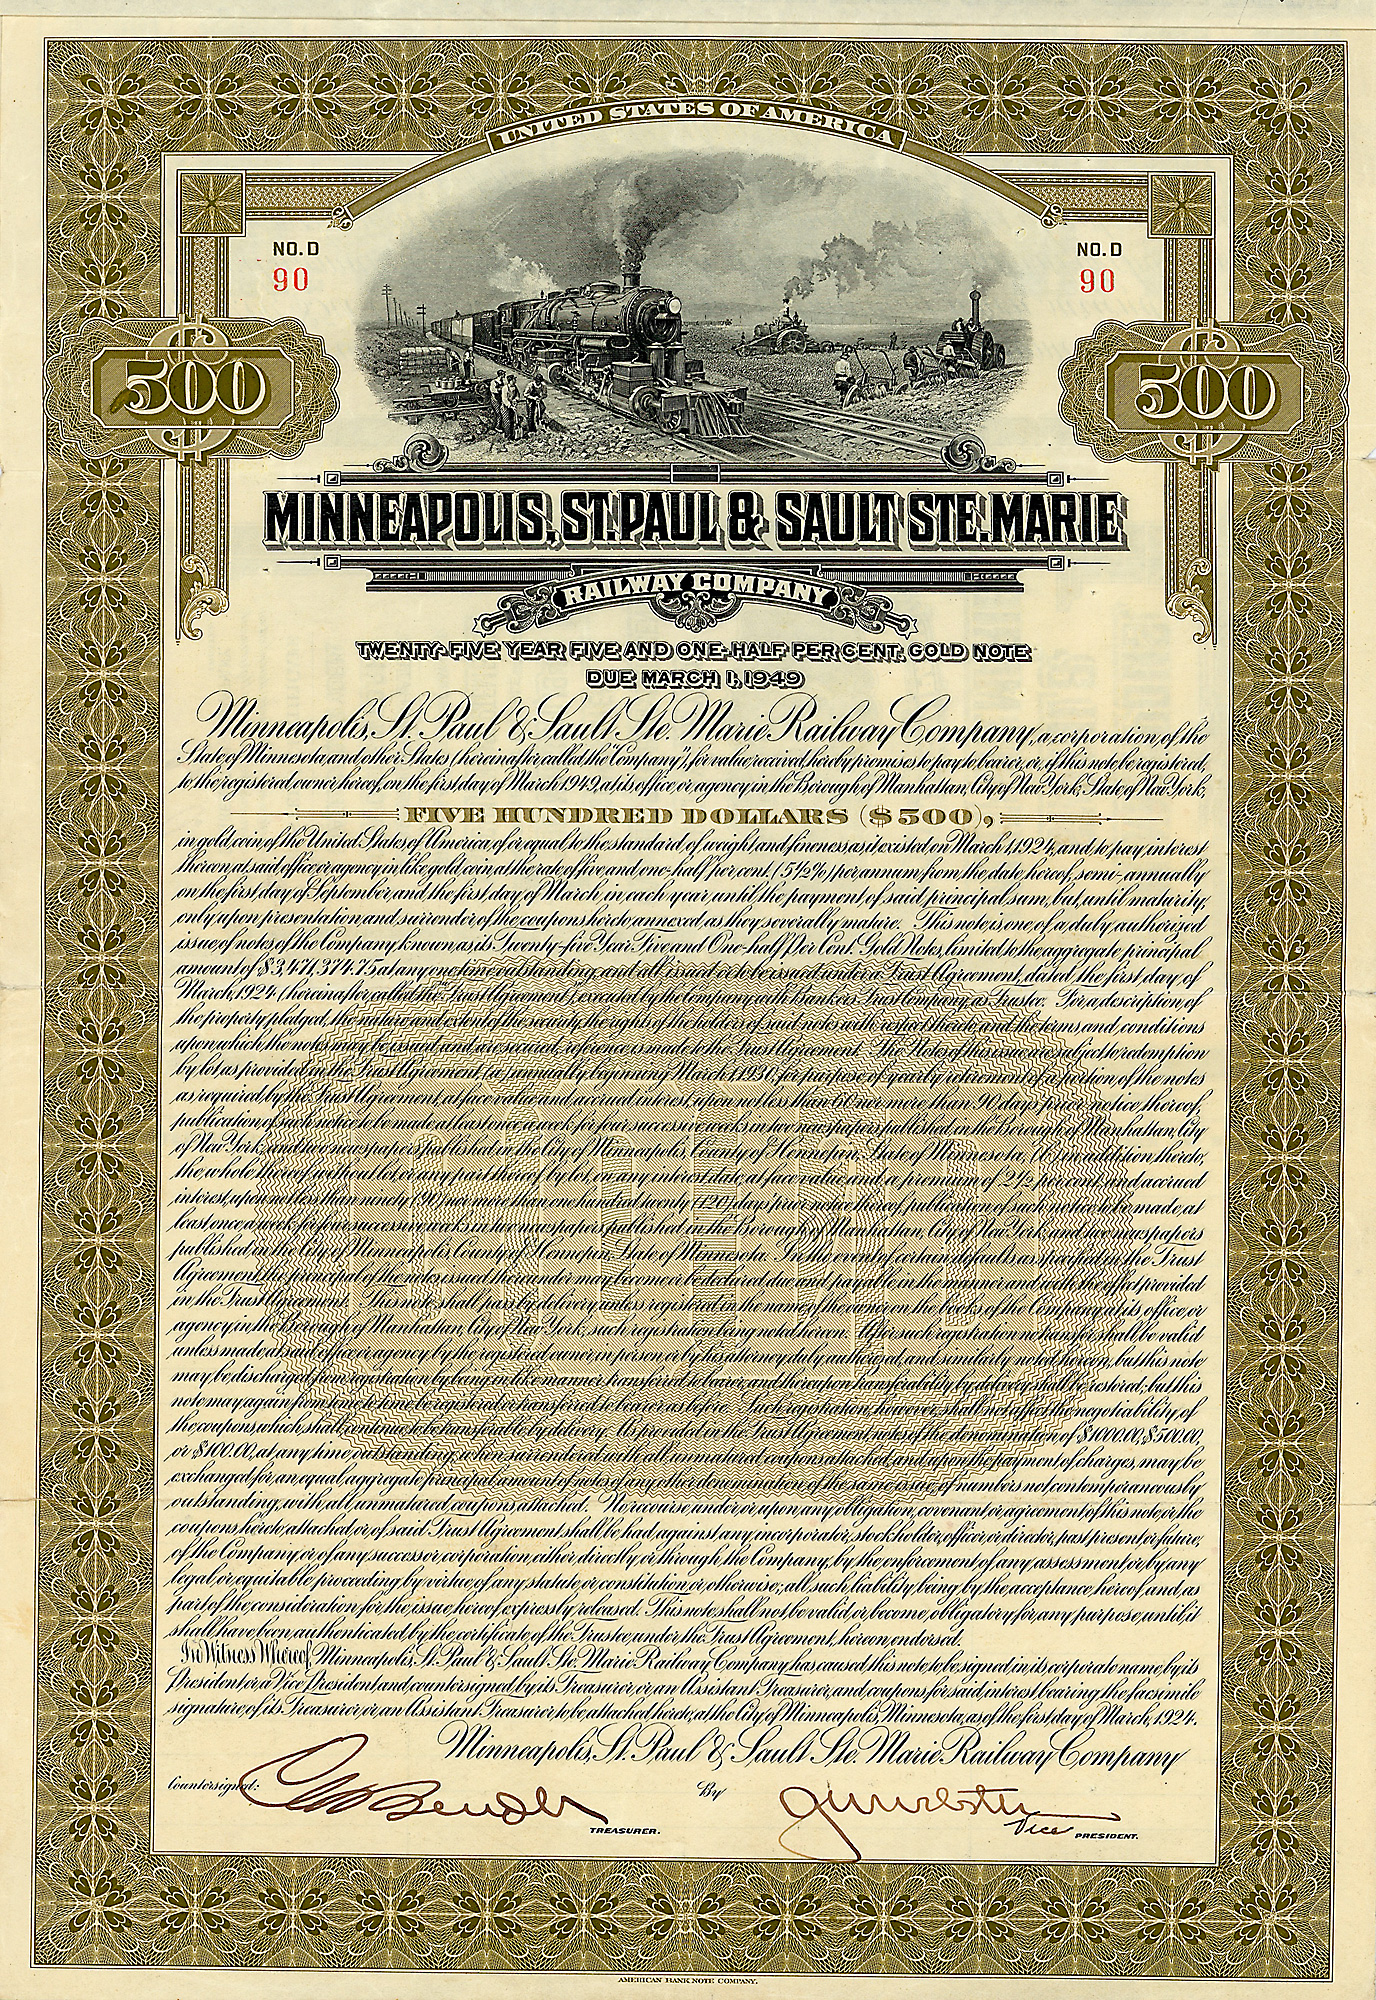 UNITED STATES OF AMERICA
NO. D
90
NO. D
90
$500
$500
MINNEAPOLIS, ST. PAUL & SAULT STE. MARIE
RAILWAY COMPANY
TWENTY-FIVE YEAR FIVE AND ONE-HALF PER CENT. GOLD NOTE
DUE MARCH 1, 1949
Minneapolis, St. Paul & Sault Ste. Marie Railway Company, a corporation of the
State of Minnesota and other States (hereinafter called the "Company"), for value received hereby promises to pay to bearer, or, if this note be registered,
to the registered owner hereof, on the first day of March 1949, at its office or agency in the Borough of Manhattan, City of New York, State of New York,
FIVE HUNDRED DOLLARS ($500),
in gold coin of the United States of America of or equal to the standard of weight and fineness as it existed on March 1, 1924, and to pay interest
thereon at said office or agency in like gold coin at the rate of five and one-half per cent. (5 1/2%) per annum from the date hereof, semi-annually
on the first day of September and the first day of March in each year until the payment of said principal sum, but, until maturity,
only upon presentation and surrender of the coupons hereto annexed as they severally mature. This note is one of a duly authorized
issue of notes of the Company known as its Twenty-five Year Five and One-half Per Cent. Gold Notes, limited to the aggregate principal
amount of $3,471,374.75 at any one time outstanding, and all issued or to be issued under a Trust Agreement, dated the first day of
March, 1924 (hereinafter called the "Trust Agreement") executed by the Company with Bankers Trust Company, as Trustee. For a description of
the property pledged, the nature and extent of the security, the rights of the holders of said notes with respect thereto and the terms and conditions
upon which the notes may be issued and are secured, reference is made to the Trust Agreement. The Notes of this issue are subject to redemption
by lot, as provided in the Trust Agreement, (a) annually beginning March 1, 1930, for purpose of yearly retirement of a portion of the notes
as required by the Trust Agreement, at face value and accrued interest, upon not less than 60 nor more than 90 days' prior notice thereof,
publication of such notice to be made at least once a week for four successive weeks in two newspapers published in the Borough of Manhattan, City
of New York, and two newspapers published in the City of Minneapolis, County of Hennepin, State of Minnesota, (b) in addition thereto,
the whole thereof without lot, or any part thereof by lot, on any interest date, at face value and a premium of 2 1/2 per cent. and accrued
interest, upon not less than ninety (90) nor more than one hundred twenty (120) days' prior notice thereof, publication of such notice to be made at
least once a week for four successive weeks in two newspapers published in the Borough of Manhattan, City of New York, and two newspapers
published in the City of Minneapolis, County of Hennepin, State of Minnesota. In the event of certain defaults as specified in the Trust
Agreement, the principal of the notes issued thereunder may become or be declared due and payable in the manner and with the effect provided
in the Trust Agreement. This note shall pass by delivery unless registered in the name of the owner on the books of the Company at its office or
agency in the Borough of Manhattan, City of New York, such registration being noted hereon. After such registration no transfer shall be valid
unless made at said office or agency by the registered owner in person or by his attorney duly authorized, and similarly noted hereon, but this note
may be discharged from registration by being in like manner transferred to bearer, and thereupon transferability by delivery shall be restored; but this
note may again from time to time be registered or transferred to bearer as before. Such registration, however, shall not affect the negotiability of
the coupons, which shall continue to be transferable by delivery. As provided in the Trust Agreement, notes of the denomination of $1000.00, $500.00,
or $100.00, at any time outstanding, when surrendered with all unmatured coupons attached, and upon the payment of charges, may be
exchanged for an equal aggregate principal amount of notes of any other denomination of the same issue, of numbers not contemporaneously
outstanding, with all unmatured coupons attached. No recourse under or upon any obligation, covenant or agreement of this note, or the
coupons hereto attached, or of said Trust Agreement, shall be had against any incorporator, stockholder, officer or director, past, present or future,
of the Company or of any successor corporation, either directly or through the Company, by the enforcement of any assessment or by any
legal or equitable proceeding by virtue of any statute or constitution or otherwise; all such liability being by the acceptance hereof, and as
part of the consideration for the issue hereof expressly released. This note shall not be valid or become obligatory for any purpose until it
shall have been authenticated by the certificate of the Trustee under the Trust Agreement, hereon endorsed.
In Witness Whereof, Minneapolis, St. Paul & Sault Ste. Marie Railway Company has caused this note to be signed in its corporate name by its
President or a Vice President and countersigned by its Treasurer or an Assistant Treasurer, and coupons for said interest bearing the facsimile
signature of its Treasurer or an Assistant Treasurer to be attached hereto, at the City of Minneapolis, Minnesota, as of the first day of March, 1924.
Minneapolis, St. Paul & Sault Ste. Marie Railway Company
Countersigned:
TREASURER.
By
Vice PRESIDENT.
AMERICAN BANK NOTE COMPANY.